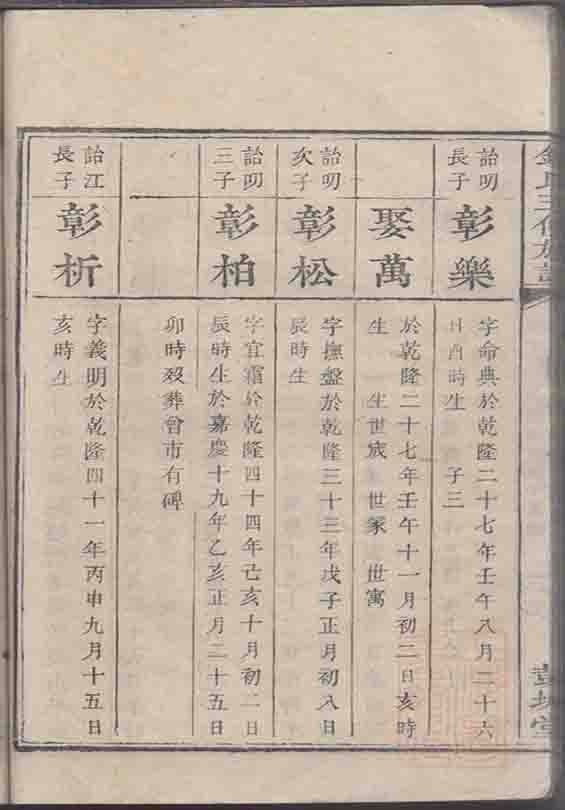 氏三修族譜
詒明
長子
彰樂
字命典於乾隆二十七年壬午八月二十六
日酉時生 子三
娶萬
於乾隆二十七年壬午十一月初二日亥時
生 生世宬 世家 世寓
詒明
次子
彰松
字撫盤於乾隆三十三年戊子正月初八日
辰時生
詒明
三子
彰柏
字宜霜於乾隆四十四年己亥十月初二日
辰時生於嘉慶十九年乙亥正月二十五日
卯時歿葬曾市有碑
詒江
長子
彰析
字義明於乾隆四十一年丙申九月十五日
亥時生
彭城堂